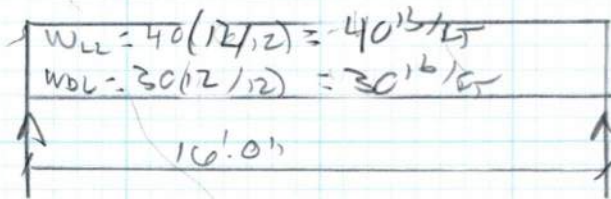 WLL = 40(12/12) = 40 lb/FT
WDL = 30(12/12) = 30 lb/FT
16'.0"